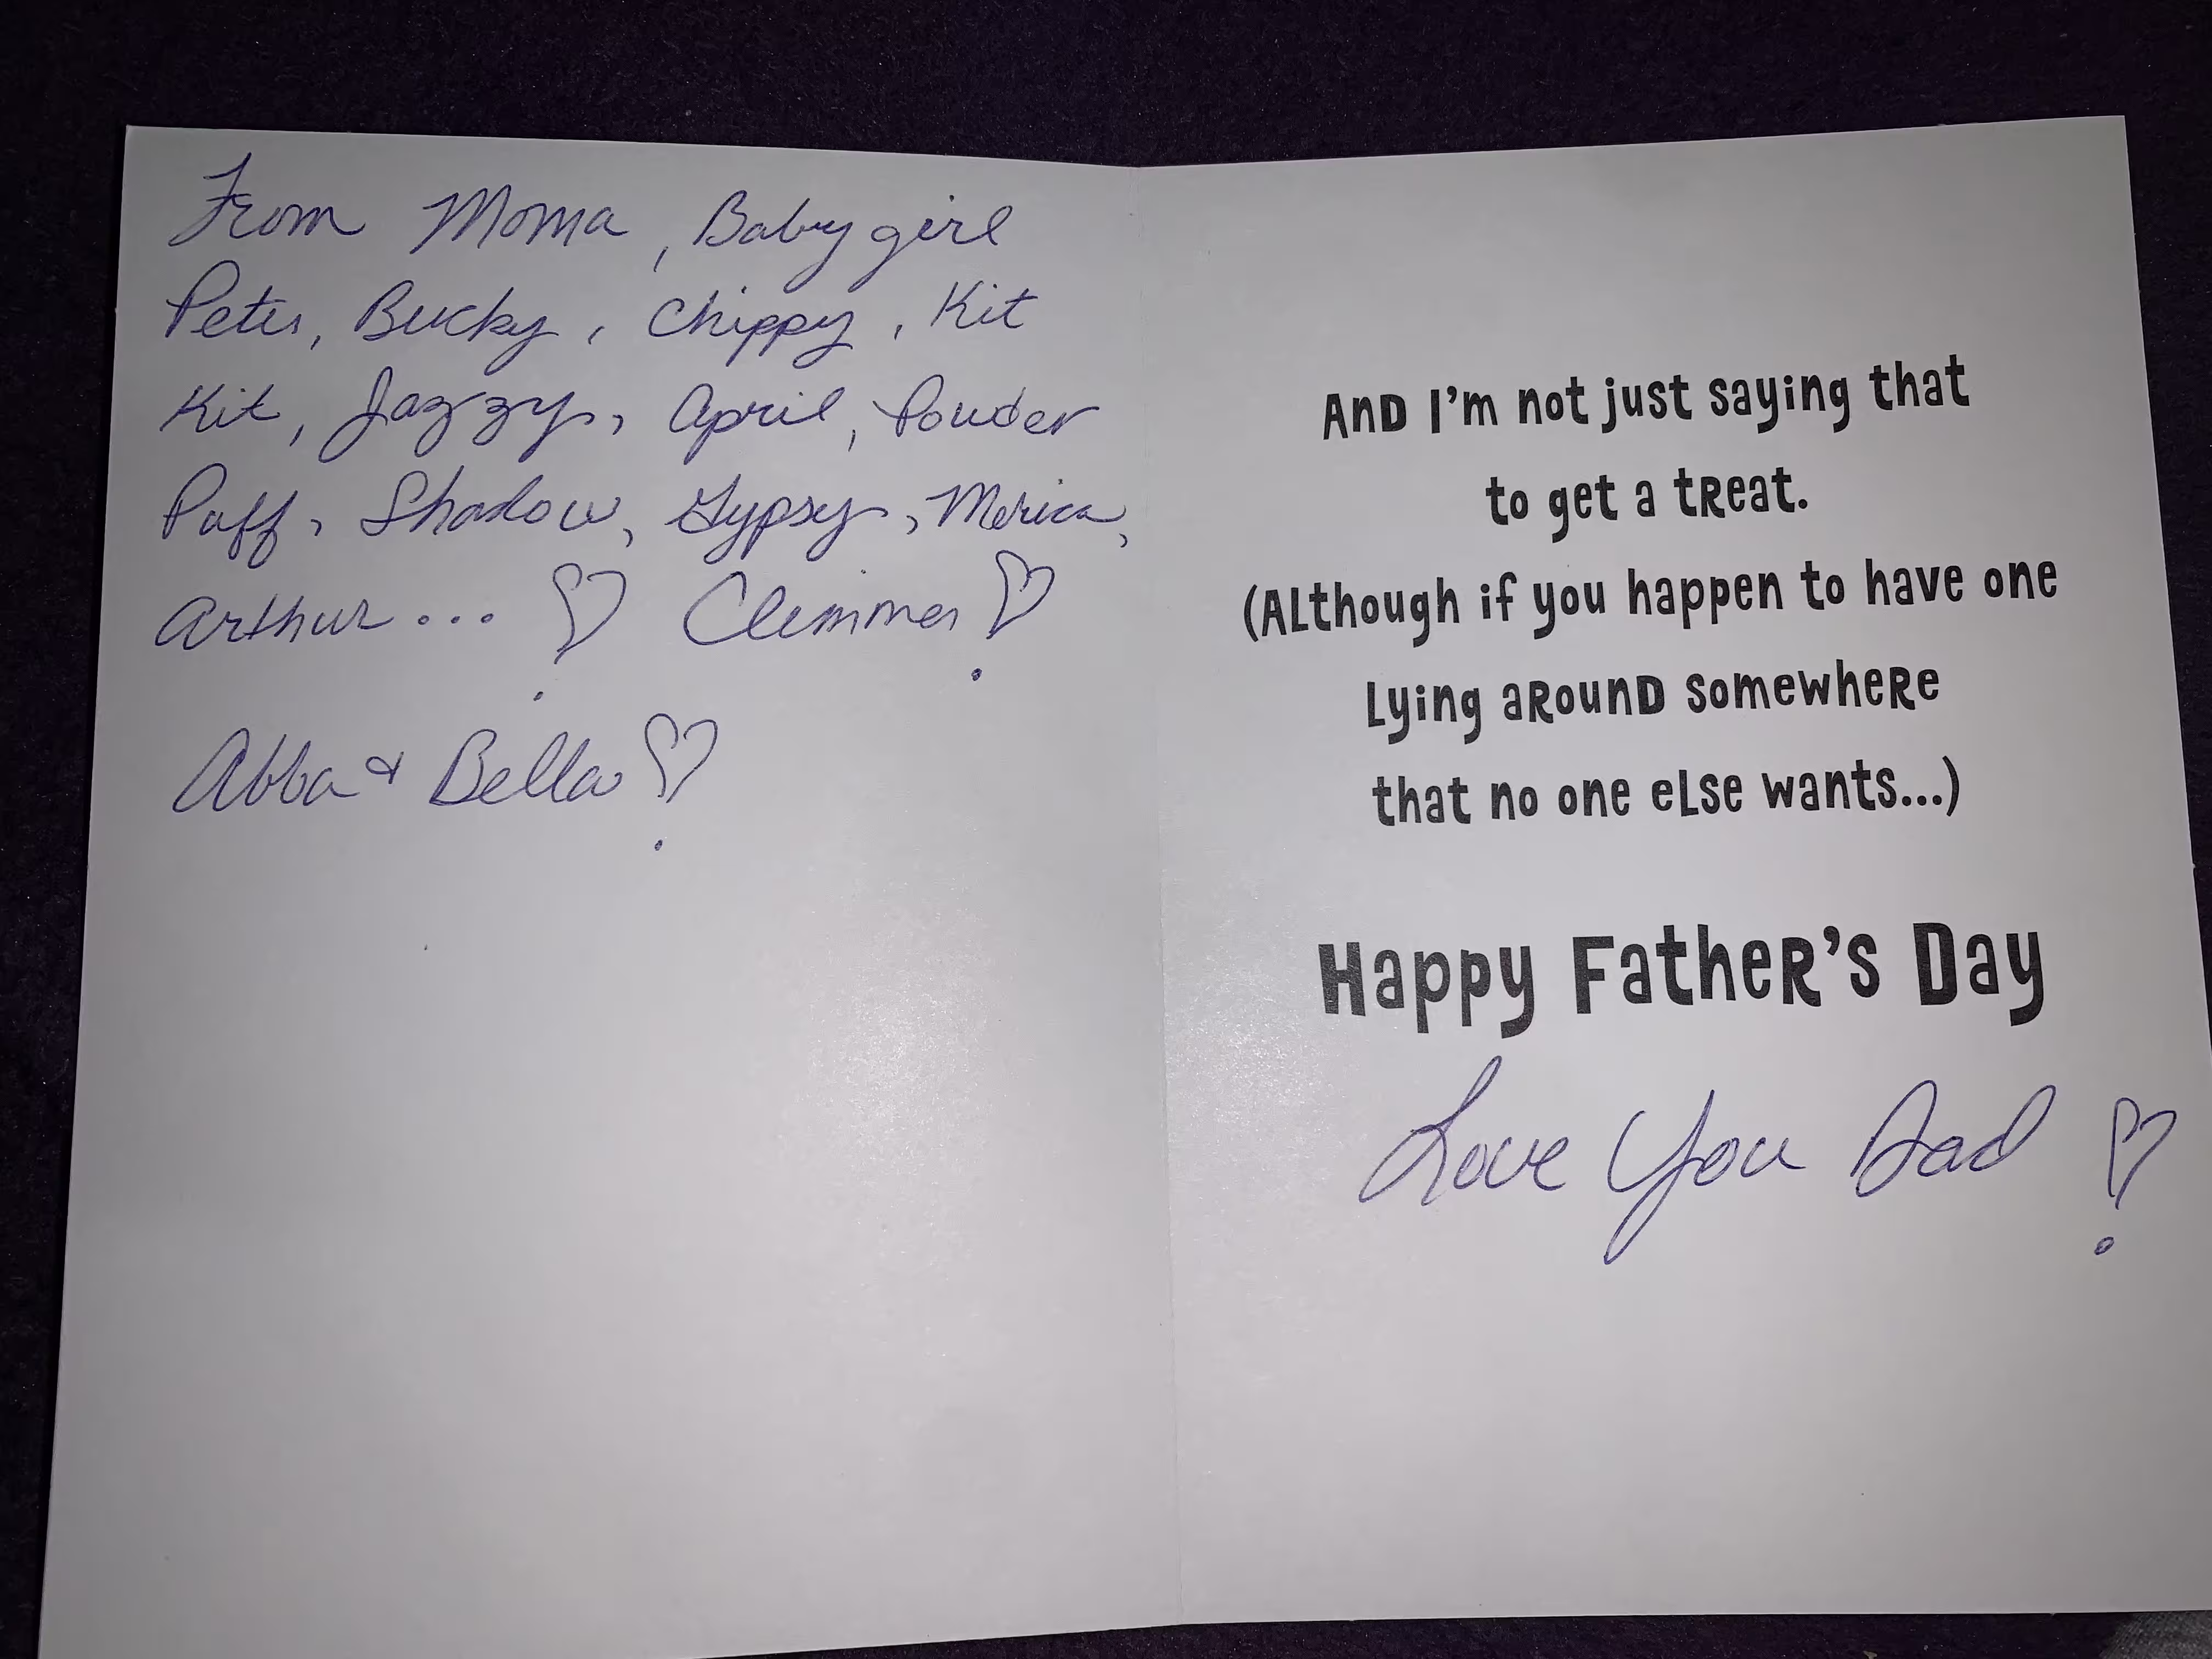 From Moma, Baby girl
Peter, Bucky, Chippy, Kit
Kit, Jazzy, April, Powder
Puff, Shadow, Gypsy, Merica,
Arthur... ♡ Clemmer ♡
Abba & Bella ♡
And I'm not just saying that
to get a treat.
(Although if you happen to have one
lying around somewhere
that no one else wants...)
Happy Father's Day
Love You Dad ♡